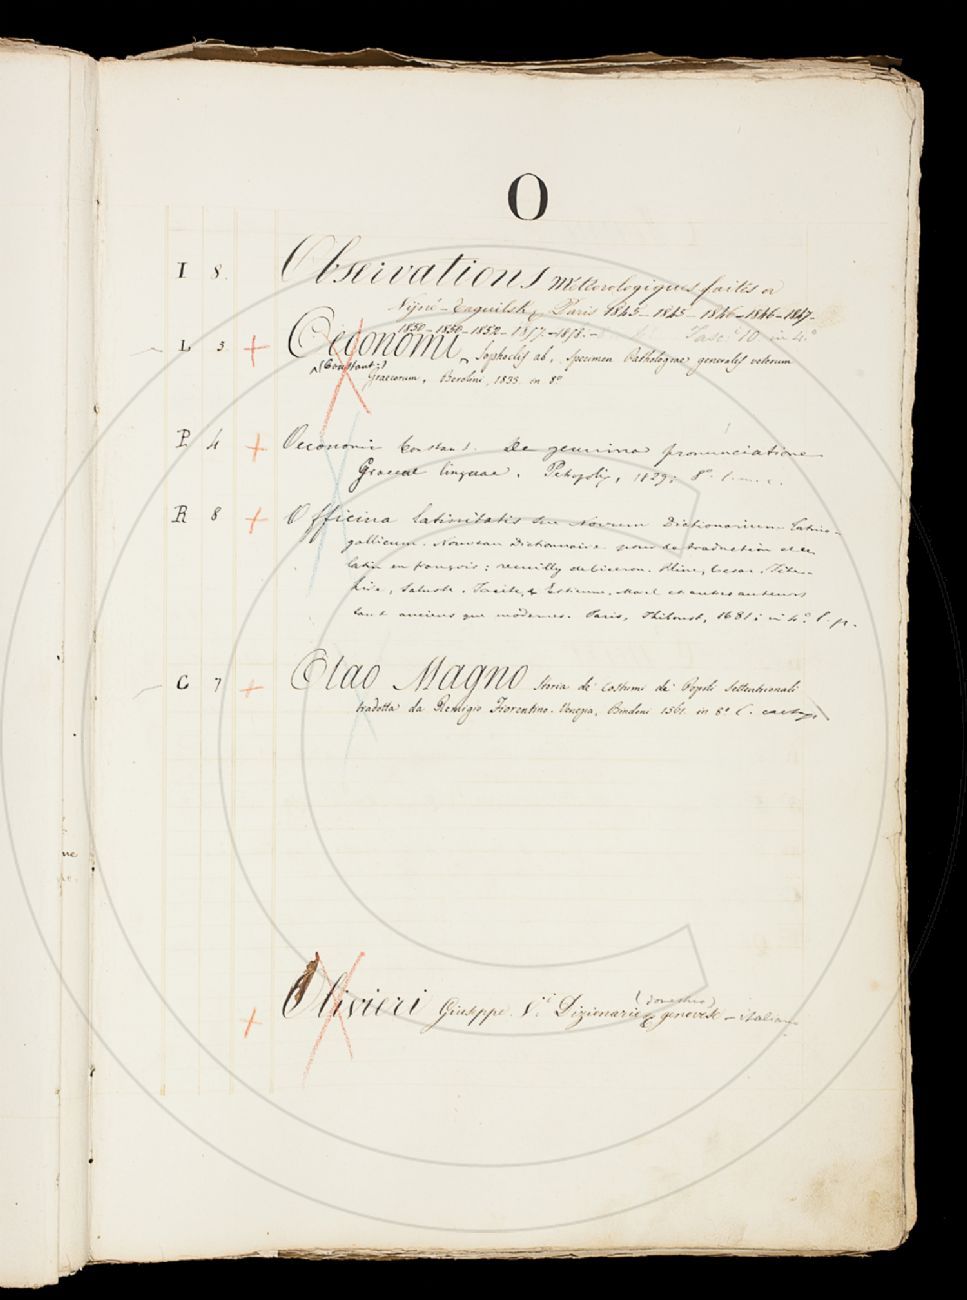 O
I 8. Observations météorologiques faites a
Nijné-Taguilsk, Paris 1845-1845-1846-1846-1847-
1850-1850-1852- - Fasc.i 10 in 4°
L 3. + Oeconomi Sophoclis ab, Specimen Pathologiae generalis veterum
(Constant:)
Graecorum, Berolini, 1833. in 8°
P 4 + Oeconomi Constant. De genuina pronunciatione
Graecae linguae. Petropoli, 1829; 8°
R 8 + Officina latinitatis seu Novum Dictionarium latino-
gallicum. Nouveau Dictionnaire pour la traduction du
latin en françois; de Ciceron, Pline, Cesar, Tite-
Live, Saluste, Tacite, et autres auteurs
tant anciens que modernes. Paris, Thiboust, 1681; in 4° l. p.
C 7 + Olao Magno Storia de' Costumi de' Popoli Settentrionali
tradotta da Remigio Fiorentino. Venezia, Bindoni 1561. in 8° l.
+ Olivieri Giuseppe. Dizionario genovese-italiano